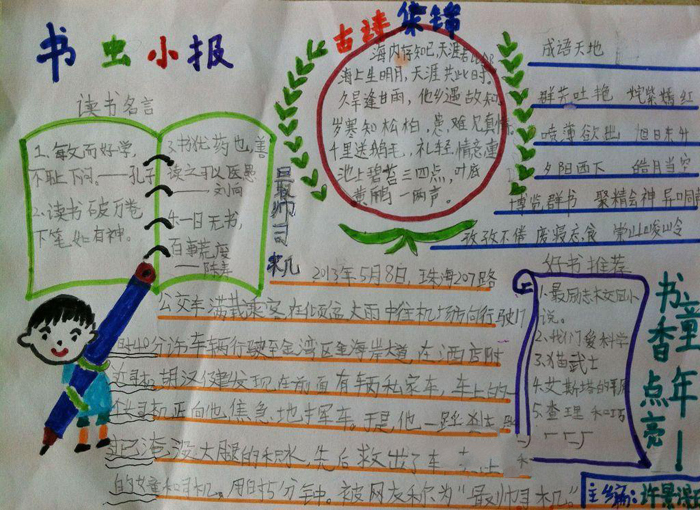 书虫小报
读书名言
1、每文而好学,
不耻下问。——孔子
2、读书破万卷
下笔如有神。
3、书犹药也,善
读之可以医愚
——刘向
4、一日无书,
百事荒废
——陈寿
古诗集锦
海内存知己,天涯若比邻
海上生明月,天涯共此时。
久旱逢甘雨,他乡遇故知
岁寒知松柏,患难见真情
千里送鹅毛,礼轻情意重
池上碧苔三四点,叶底
黄鹂一两声。
成语天地
群芳吐艳 姹紫嫣红
喷薄欲出 旭日东升
夕阳西下 皓月当空
博览群书 聚精会神 异口同
孜孜不倦 废寝忘食 崇山峻岭
最帅司机
2013年5月8日,珠海207路
公交车满载乘客在倾盆大雨中往机场方向行驶了
40分许,车辆行驶至金湾区金海岸大道,在酒店附
近司机胡汉健发现,在前面有辆私家车,车上的
司机正向他焦急地挥车。于是,他一跳
淹没大腿的积水,先后救出了车
司机。用时5分钟。被网友称为“最帅司机”。
好书推荐
1、最励志校园小
说。
2、我们爱科学
3、猫武士
4、艾斯塔的
5、查理和巧
书香点亮
童年!
主编:许景